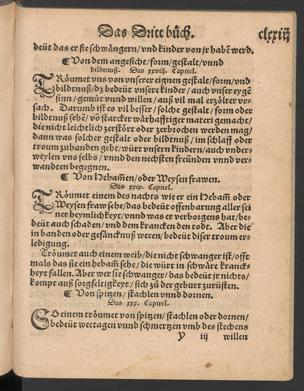 Das Dritt buͦch. clxxiij
deüt das er sie schwängern/ vnd kinder von jr habẽ werd.
¶ Von dem angesicht/ form/ gestalt/ vnnd
bildtnuß. Das xxviij. Capitel.
TRöumet vns von vnserer eignen gestalt/ form/ vnd
bildtnuß/ dz bedeüt vnsere kinder/ auch vnser eygẽ
sinn/ gemüt vnnd willen/ auß vil mal erzölter vr-
sach. Darumb ist es vil besser/ solche gestalt/ form oder
bildtnuß sehe/ vō starcker wärhafftiger materi gemacht/
die nicht leichtlich zerstört oder zerbrochen werden mag/
dann was solcher gestalt oder bildtnuß/ im schlaff oder
troum zuhanden geht/ würt vnsern kindern/ auch vnder-
weylen vns selbs/ vnnd den nechsten freünden vnnd ver-
wandten begegnen.
¶ Von Hebam̃en/ oder Weysen frawen.
Das xxix. Capitel.
TRöumet einem des nachts wie er ein Hebam̃ oder
Weysen fraw sehe/ das bedeüt offenbarung aller sei
ner heymligkeyt/ vnnd was er verborgens hat/ be-
deüt auch schaden/ vnd dem krancken den tod. Aber die
in banden oder gefäncknuß weren/ bedeüt diser troum er-
ledigung.
Tröumet auch einem weib/ die nicht schwanger ist/ off-
mals das sie ein hebam̃ sehe/ die würt in schwäre kranck-
heyt fallen. Aber wer sie schwanger/ das bedeüt jr nichts/
kompt auß sorgfeltigkeyt/ sich zuͦ der geburt zurüsten.
¶ Von spitzen/ stachlen vnnd dornen.
Das xxx. Capitel.
SO einem tröumet von spitzen/ stachlen oder dornen/
bedeüt weetagen vnnd schmertzen vmb des stechens
y iij willen